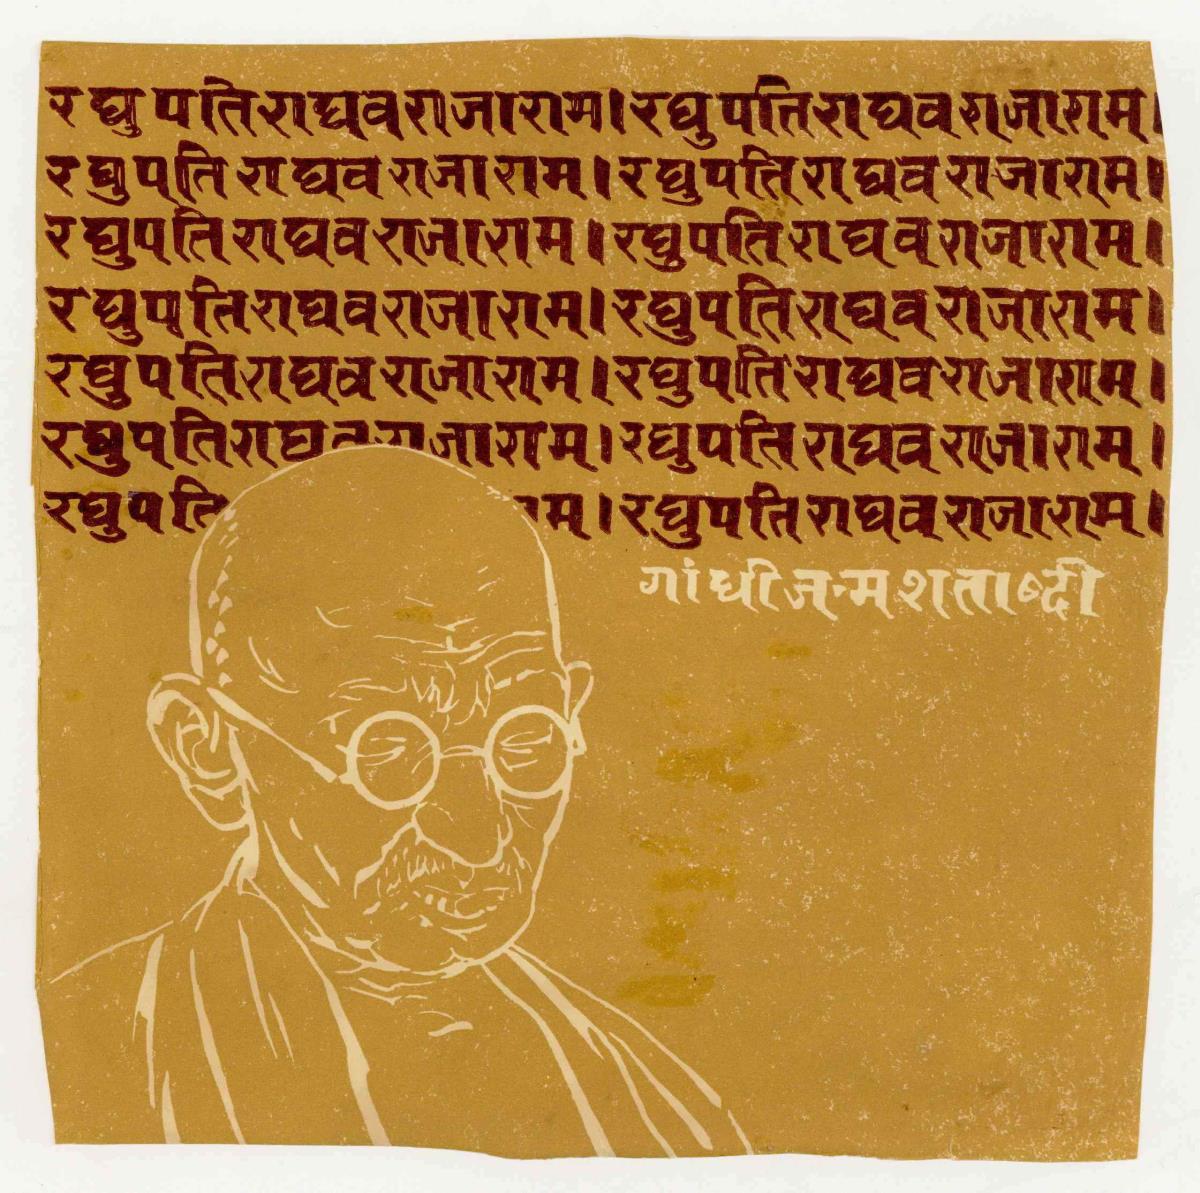 रघुपति राघव राजाराम। रघुपति राघव राजाराम।
रघुपति राघव राजाराम। रघुपति राघव राजाराम।
रघुपति राघव राजाराम। रघुपति राघव राजाराम।
रघुपति राघव राजाराम। रघुपति राघव राजाराम।
रघुपति राघव राजाराम। रघुपति राघव राजाराम।
रघुपति राघव राजाराम। रघुपति राघव राजाराम।
रघुपति ाम। रघुपति राघव राजाराम।
गांधी जन्म शताब्दी